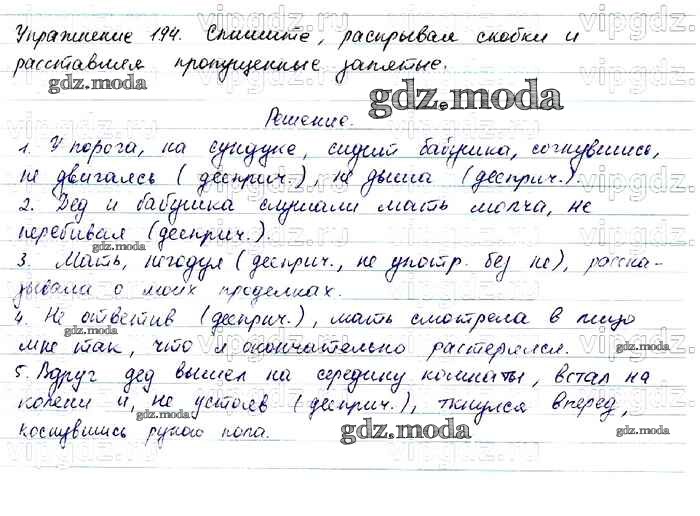 Упражнение 194. Спишите, раскрывая скобки и
расставляя пропущенные запятые.
gdz.moda
gdz.moda
Решение.
1. У порога, на сундуке, сидит бабушка, согнувшись,
не двигаясь (дееприч.), не дыша (дееприч.).
2. Дед и бабушка слушали мать молча, не
перебивая (дееприч.).
3. Мать, негодуя (дееприч., не употр. без не), расска-
зывала о моих проделках.
4. Не ответив (дееприч.), мать смотрела в лицо
мне так, что я окончательно растерялся.
gdz.moda
gdz.moda
5. Вдруг дед вышел на середину комнаты, встал на
колени и, не устояв (дееприч.), ткнулся вперед,
коснувшись рукою пола.
gdz.moda
gdz.moda
gdz.moda
vipgdz.ru